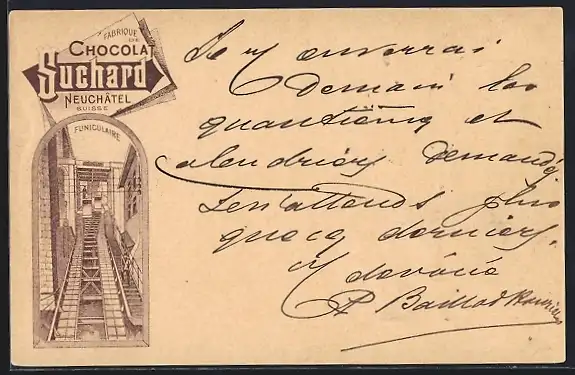 FABRIQUE
DE
CHOCOLAT
Suchard
NEUCHÂTEL
SUISSE
FUNICULAIRE
Je V enverrai
Demain les
quantièmes et
calendriers Demandés
J'en attends plus
que ces derniers.
V dévoué
P. Baillod